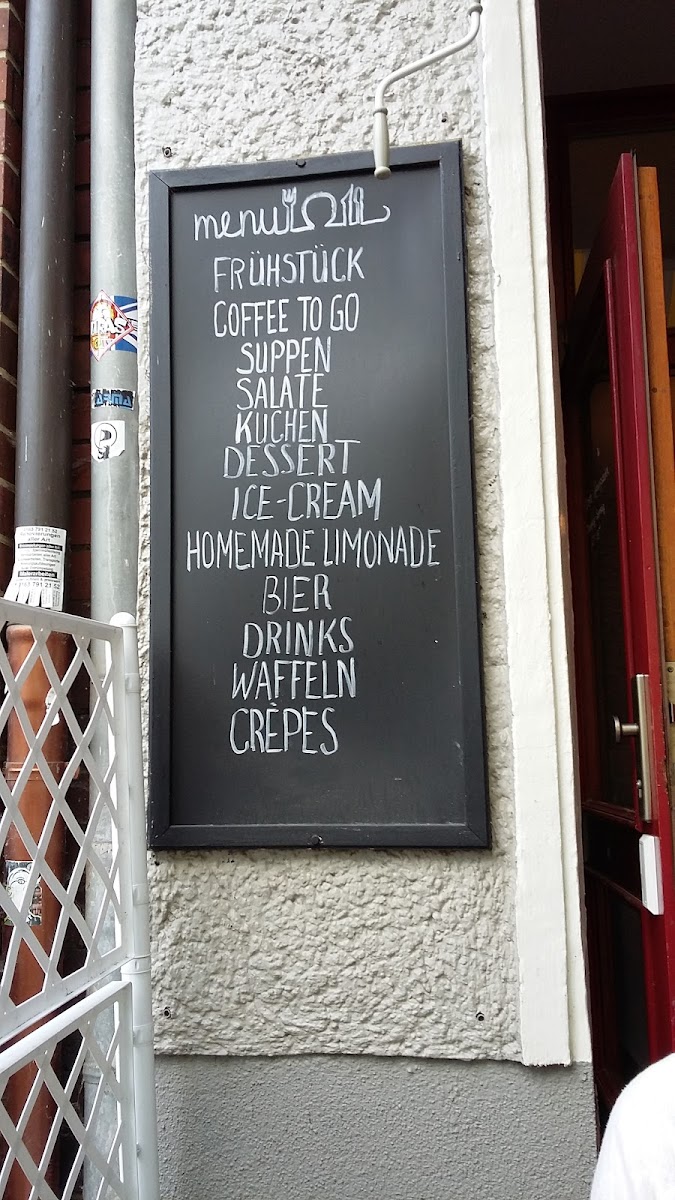 menu
FRÜHSTÜCK
COFFEE TO GO
SUPPEN
SALATE
KUCHEN
DESSERT
ICE-CREAM
HOMEMADE LIMONADE
BIER
DRINKS
WAFFELN
CRÊPES